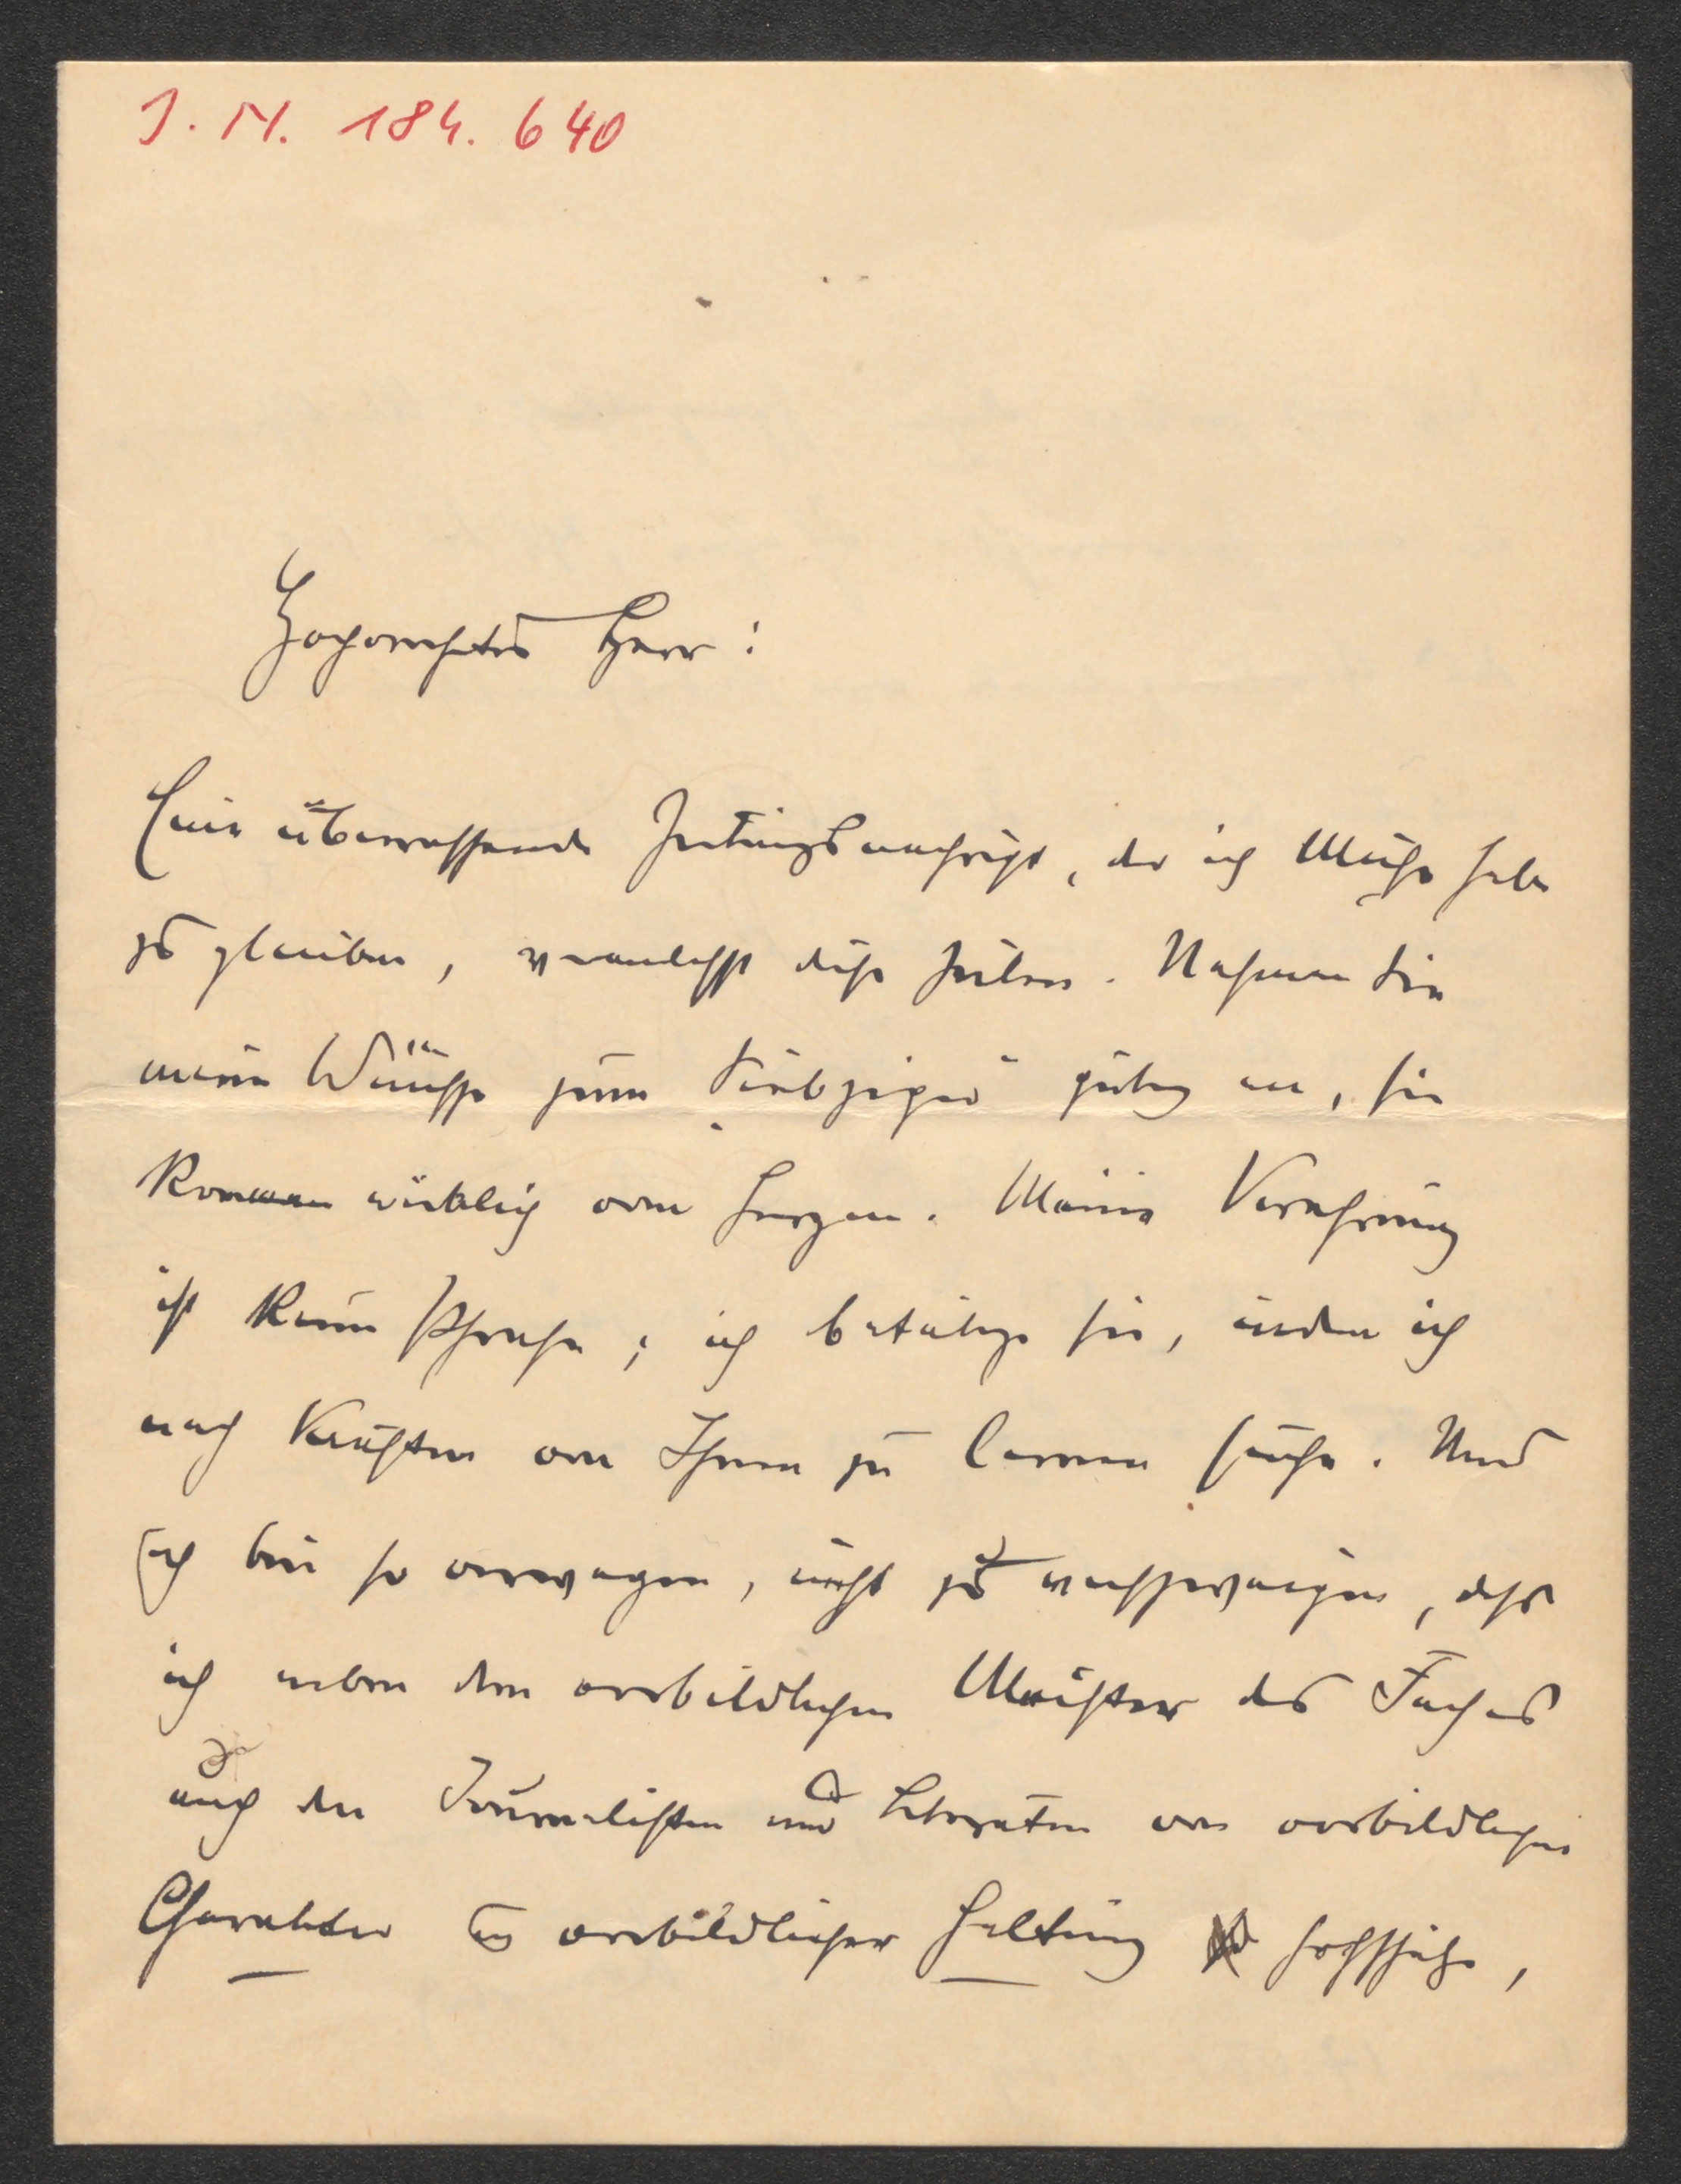 J. N. 184.640
Hochverehrter Herr:
Eine überraschende Zeitungsnachricht, der ich Mühe habe
zu glauben, veranlasst diese Zeilen. Nehmen Sie
meine Wünsche zum „Siebziger“ gütig an, sie
kommen wirklich vom Herzen. Meine Verehrung
ist keine Phrase; ich betätige sie, indem ich
nach Kräften von Ihnen zu lernen suche. Und
ich bin so verwegen, nicht zu verschweigen, dass
ich neben dem vorbildlichen Meister des Faches
auch den Journalisten und Literaten von vorbildlichem
Charakter u vorbildlicher Haltung hochschätze,